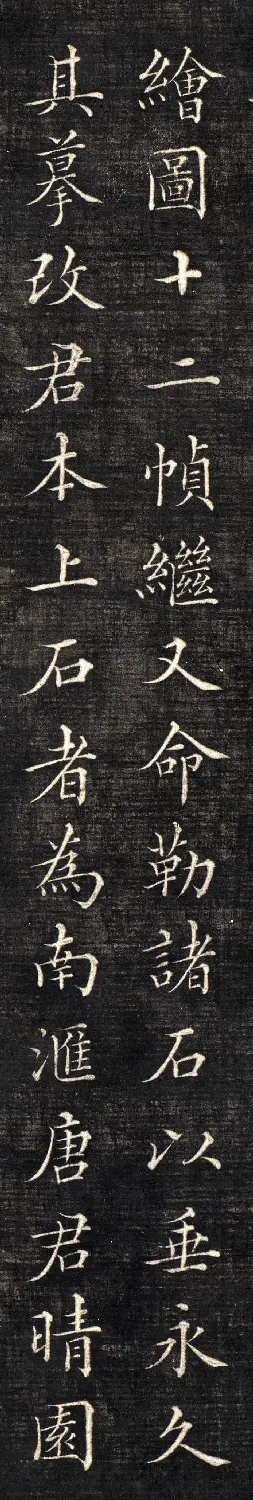 繪圖十二幀繼又命勒諸石以垂永久
其摹改君本上石者為南滙唐君晴園